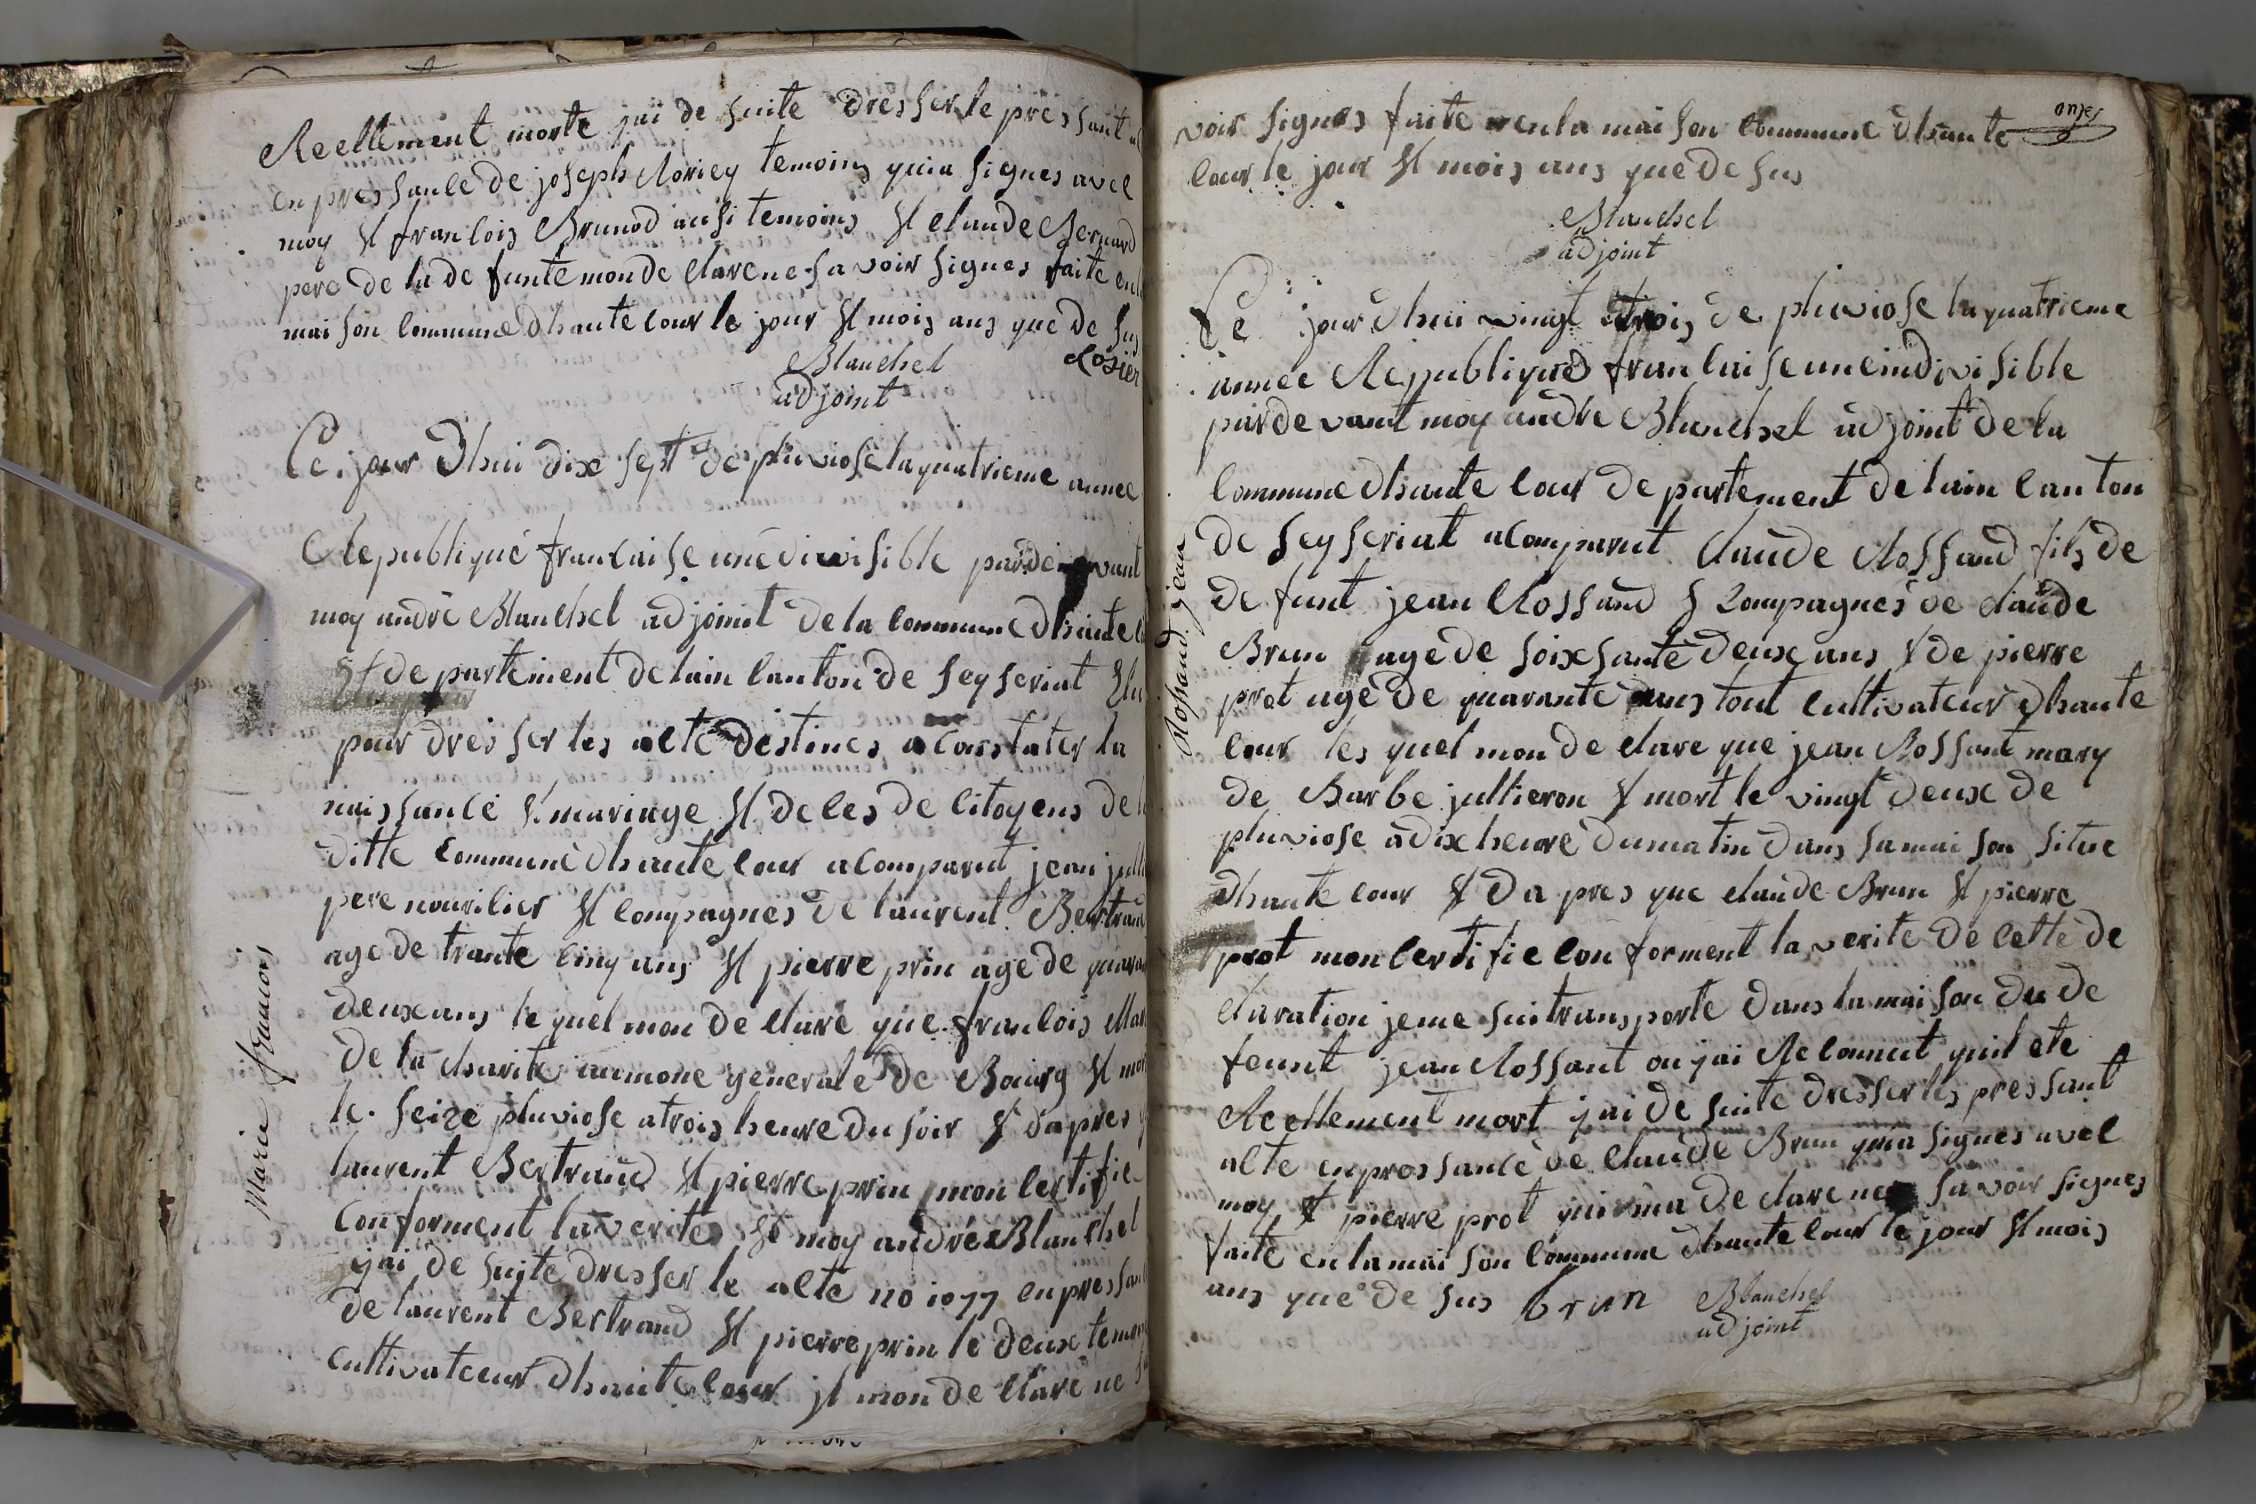 Reellement morte jai de suite dresser le pressant
en pressance de joseph Roriey temoins quia signes avec
moy et francois Brunod ausi temoins et claude Bernard
pere de la defunte mon declare ne savoir signes faite en
maison commune dhaute cour le jour et mois ans que de sus
Blanchet Rosier
adjoint
Ce jour dhui dix sept de pluviose la quatrieme annee
Republique francaise une divisible par devant
moy andre Blanchet adjoint de la commune dhaute
et departement de lain canton de seyseriat Elu
pour dresser les acte destines a constater la
naissance et mariage et deces de citoyens de
ditte commune dhaute cour a comparut jean
pere nourilier et compagnes de laurent Bertrand
age de trante cinq ans et pierre prin age de
deux ans le quel mon declare que francois
de la charite aumone generale de Bourg et
le seize pluviose a trois heure du soir et dapres
laurent Bertrand et pierre prin mon certifie
conforment la verite et moy andré Blanchet
jai de suite dresser le acte no 1077 en
de laurent Bertrand et pierre prin le deux
cultivateur dhaute cour il mon declare ne
Marie francois
onzes
voir signes faite en la maison commune dhaute
cour le jour et mois ans que de sus
Blanchet
adjoint
Ce jour dhui vingt trois de pluviose la quatrieme
annee Republique francaise une indivisible
par devant moy andre Blanchet adjoint de la
commune dhaute cour departement de lain canton
de seyseriat a comparut claude Rossand fils de
defunt jean Rossand et compagnes de claude
Brun age de soixsante deux ans et de pierre
prot age de quarante ans tout cultivateur dhaute
cour les quel mon declare que jean Rossant mary
de Barbe jullieron et mort le vingt deux de
pluviose a dix heure du matin dans sa maison situe
dhaute cour et da pres que claude Brun et pierre
prot mon certifie conforment la verite de cette de
claration jeme sui transporte dans la maison du de
feunt jean Rossant ou jai Reconnut quil ete
Reellement mort jai de suite dresser les pressant
acte en pressance de claude Brun quia signes avec
moy et pierre prot qui ma declare ne savoir signes
faite en la maison commune dhaute cour le jour et mois
ans que de sus brun Blanchet
adjoint
Rossand jean